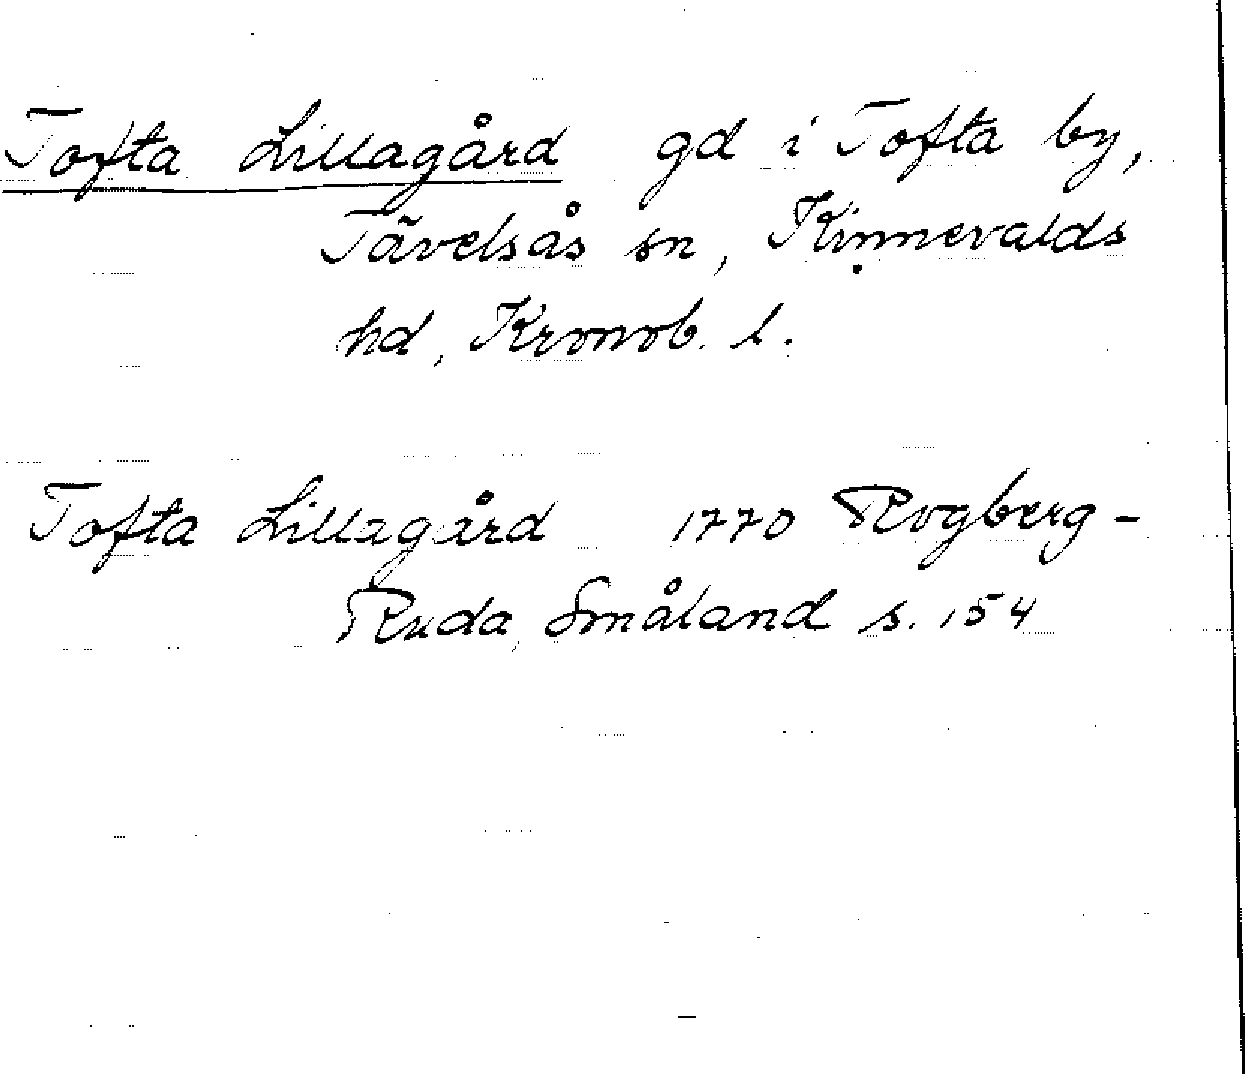 Tofta Lillagård gd i Tofta by,
Tävelsås sn, Kinnevalds
hd, Kronob. l.
Tofta Lillagård 1770 Rogberg-
Ruda, Småland s. 154